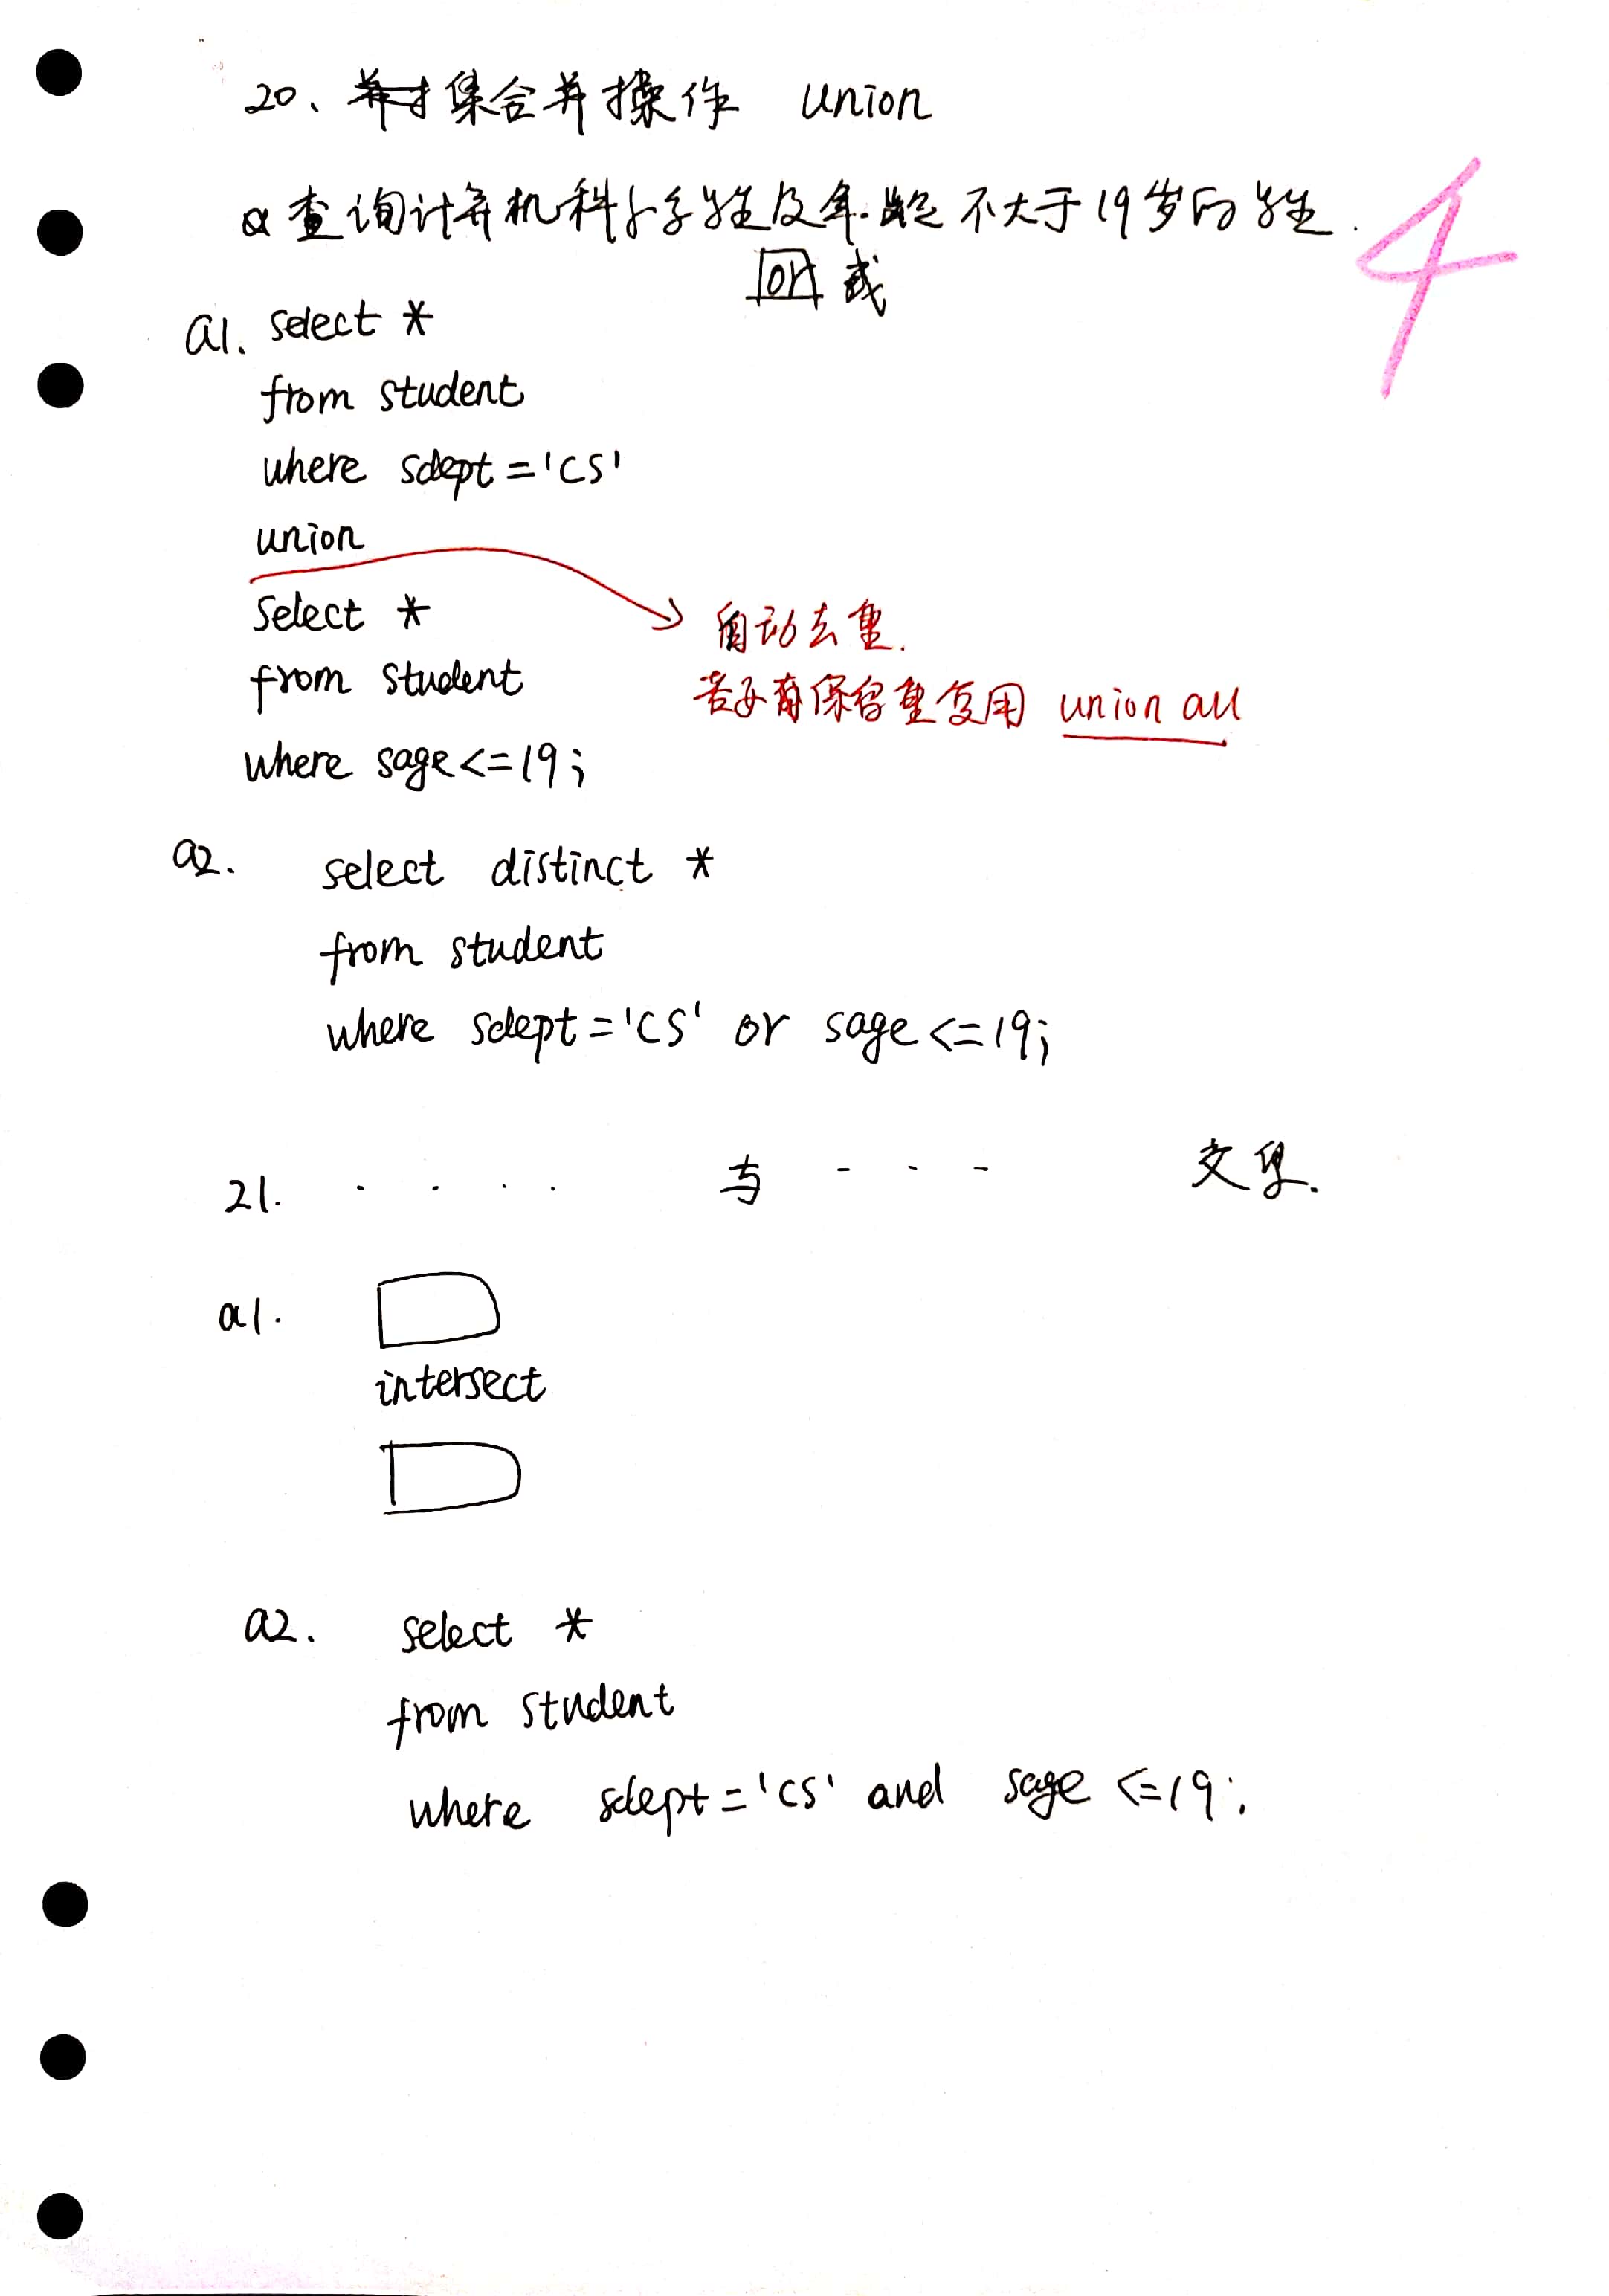 20、集合并操作 union
Q 查询计算机科学学生及年龄不大于19岁的学生.
or 或
4
a1. select *
from student
where sdept = 'CS'
union
select *
from student
where sage <= 19;
自动去重.
若要保留重复用 union all
a2. select distinct *
from student
where sdept = 'CS' or sage <= 19;
21. . . . . 与 - - - 交集.
a1.
intersect
a2. select *
from student
where sdept = 'CS' and sage <= 19;